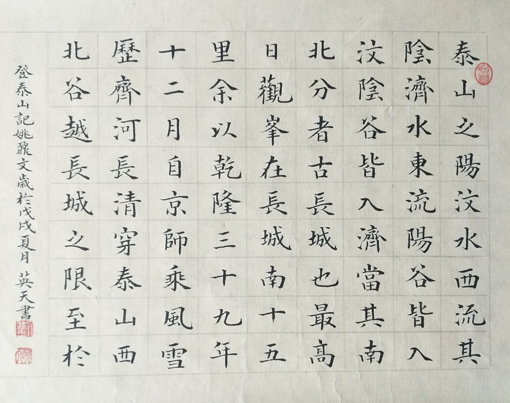 泰山之陽汶水西流其
陰濟水東流陽谷皆入
汶陰谷皆入濟當其南
北分者古長城也最高
日觀峯在長城南十五
里余以乾隆三十九年
十二月自京師乘風雪
歷齊河長清穿泰山西
北谷越長城之限至於
登泰山記姚鼐文歲於戊戌夏月英天書